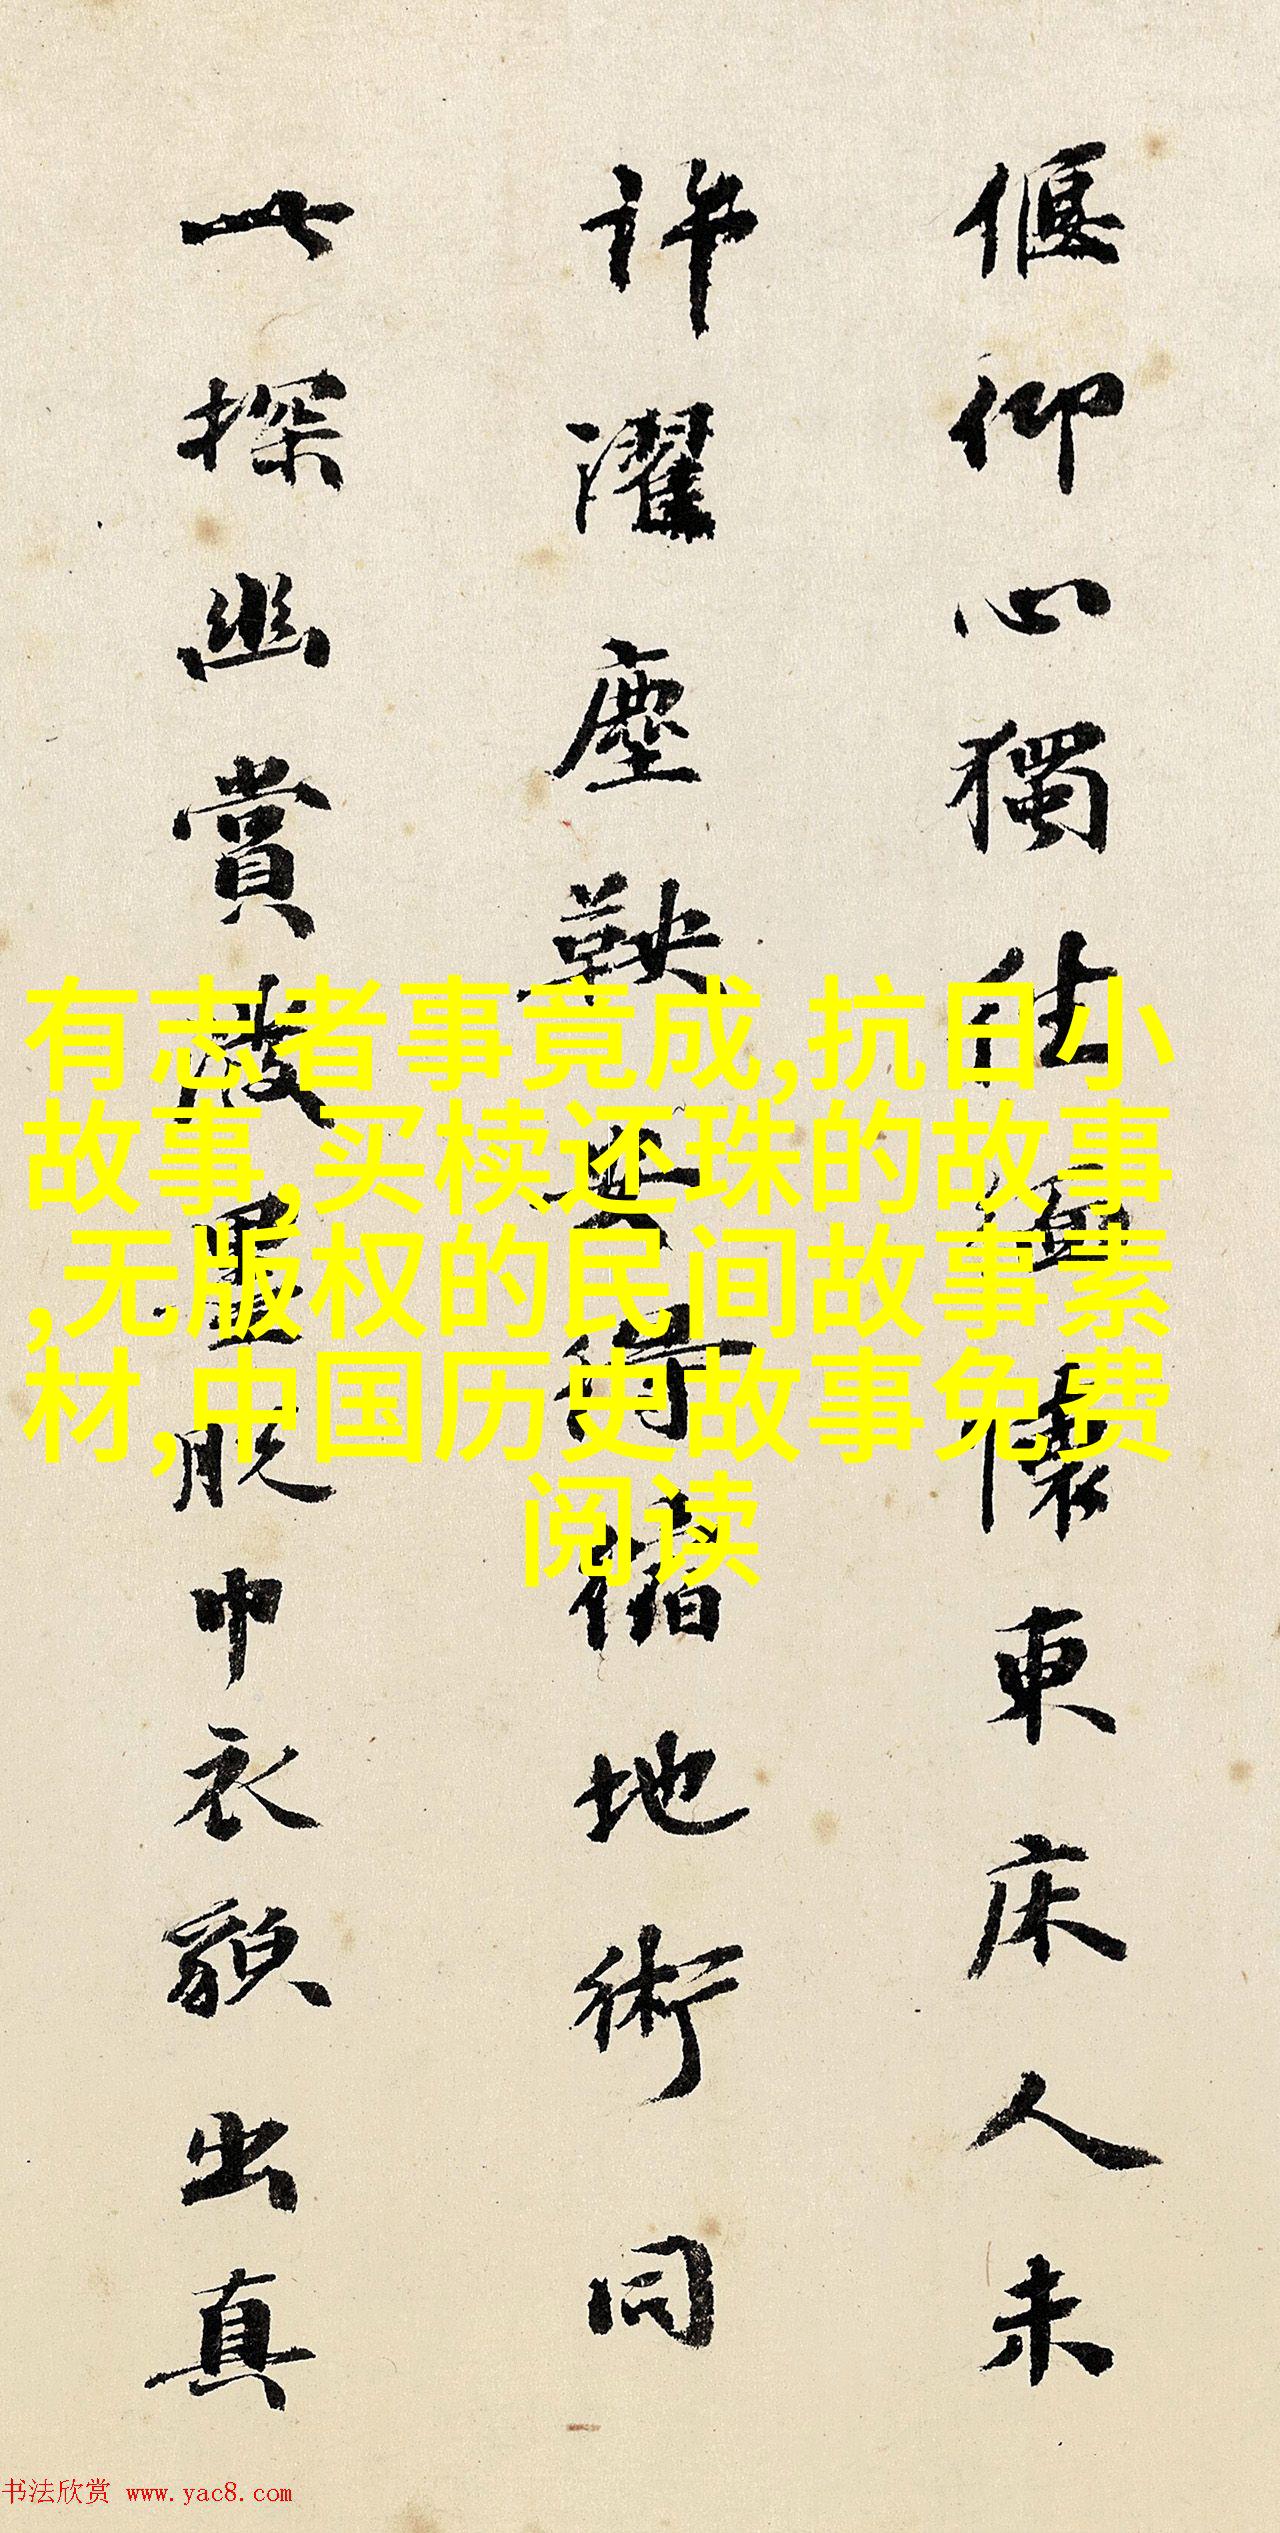 偃仰心獨往緬懷東床人未
許濯塵鞅要得循地術同
一探幽賞般墨脫巾衣顏出真
有志者事竟成,抗日小
故事,买椟还珠的故事
,无版权的民间故事素
材,中国历史故事免费
阅读
书法欣赏 www.yac8.com